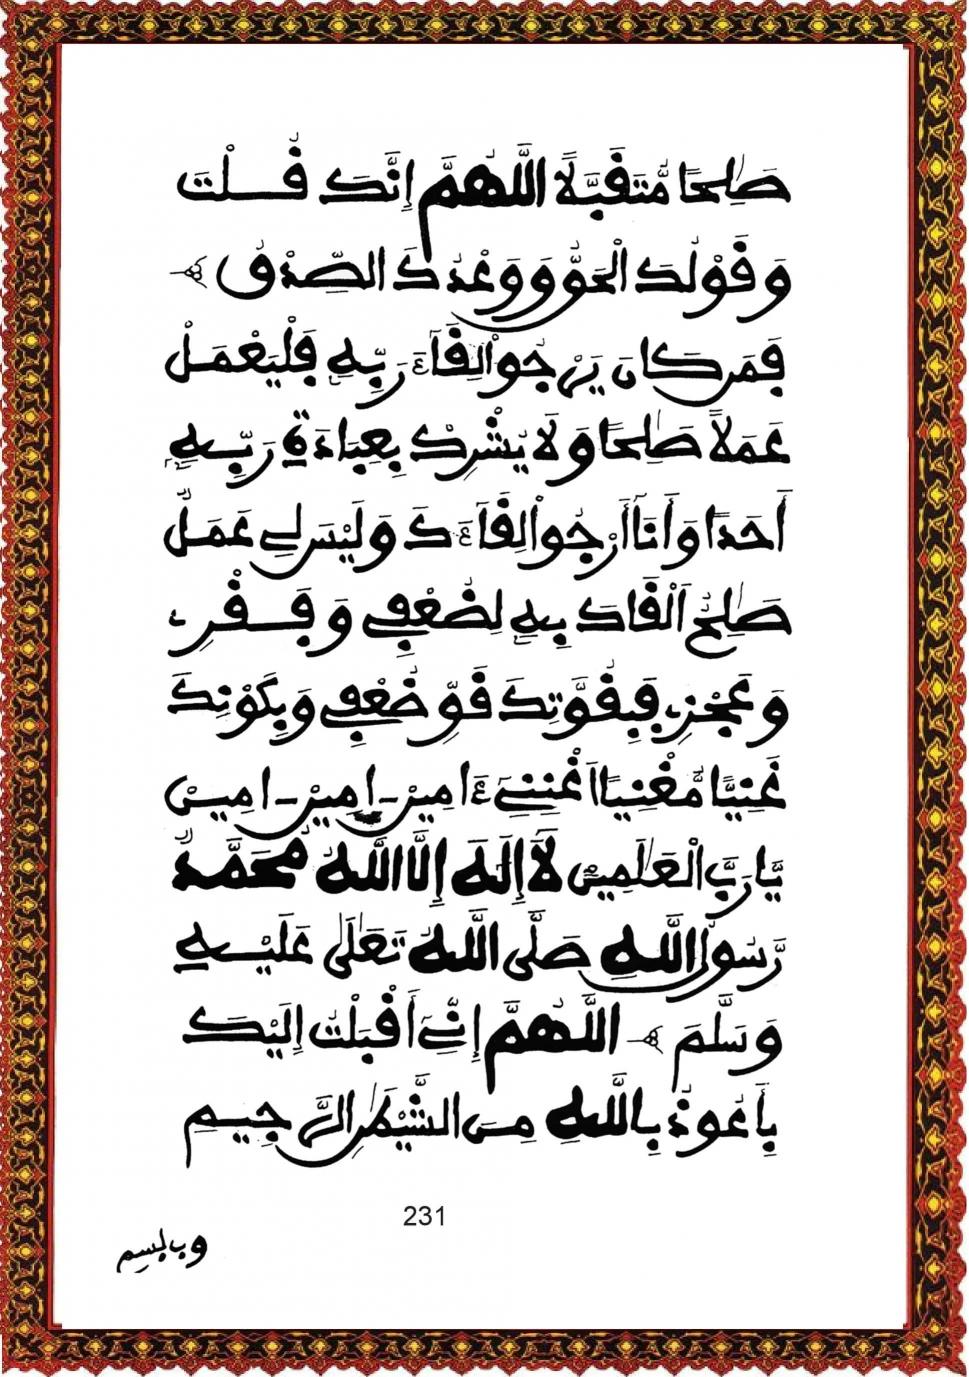 صَالِحًا مُّتَقَبَّلًا اللَّهُمَّ إِنَّكَ قُلْتَ
وَقَوْلُكَ الْحَقُّ وَوَعْدُكَ الصِّدْقُ
فَمَن كَانَ يَرْجُوا لِقَآءَ رَبِّهِ فَلْيَعْمَلْ
عَمَلًا صَالِحًا وَلَا يُشْرِكْ بِعِبَادَةِ رَبِّهِ
أَحَدًا وَأَنَا أَرْجُوا لِقَآءَكَ وَلَيْسَ لِي عَمَلٌ
صَالِحٌ أَلْقَاكَ بِهِ لِضُعْفِي وَفَقْرِي
وَعَجْزِي فَبِقُوَّتِكَ قَوِّ ضُعْفِي وَبِكَوْنِكَ
غَنِيًّا مُّغْنِيًا أَغْنِنِي ءَامِين ـ امِين ـ امِين
يَّا رَبَّ الْعَالَمِين لَآ إِلَهَ إِلَّا اللَّهُ مُحَمَّدٌ
رَّسُولُ اللَّهِ صَلَّى اللَّهُ تَعَالَى عَلَيْهِ
وَسَلَّمَ اللَّهُمَّ إِنِّي أَقْبَلْتُ إِلَيْكَ
بِأَعُوذُ بِاللَّهِ مِنَ الشَّيْطَانِ الرَّجِيمِ
231
وب‍ بسم